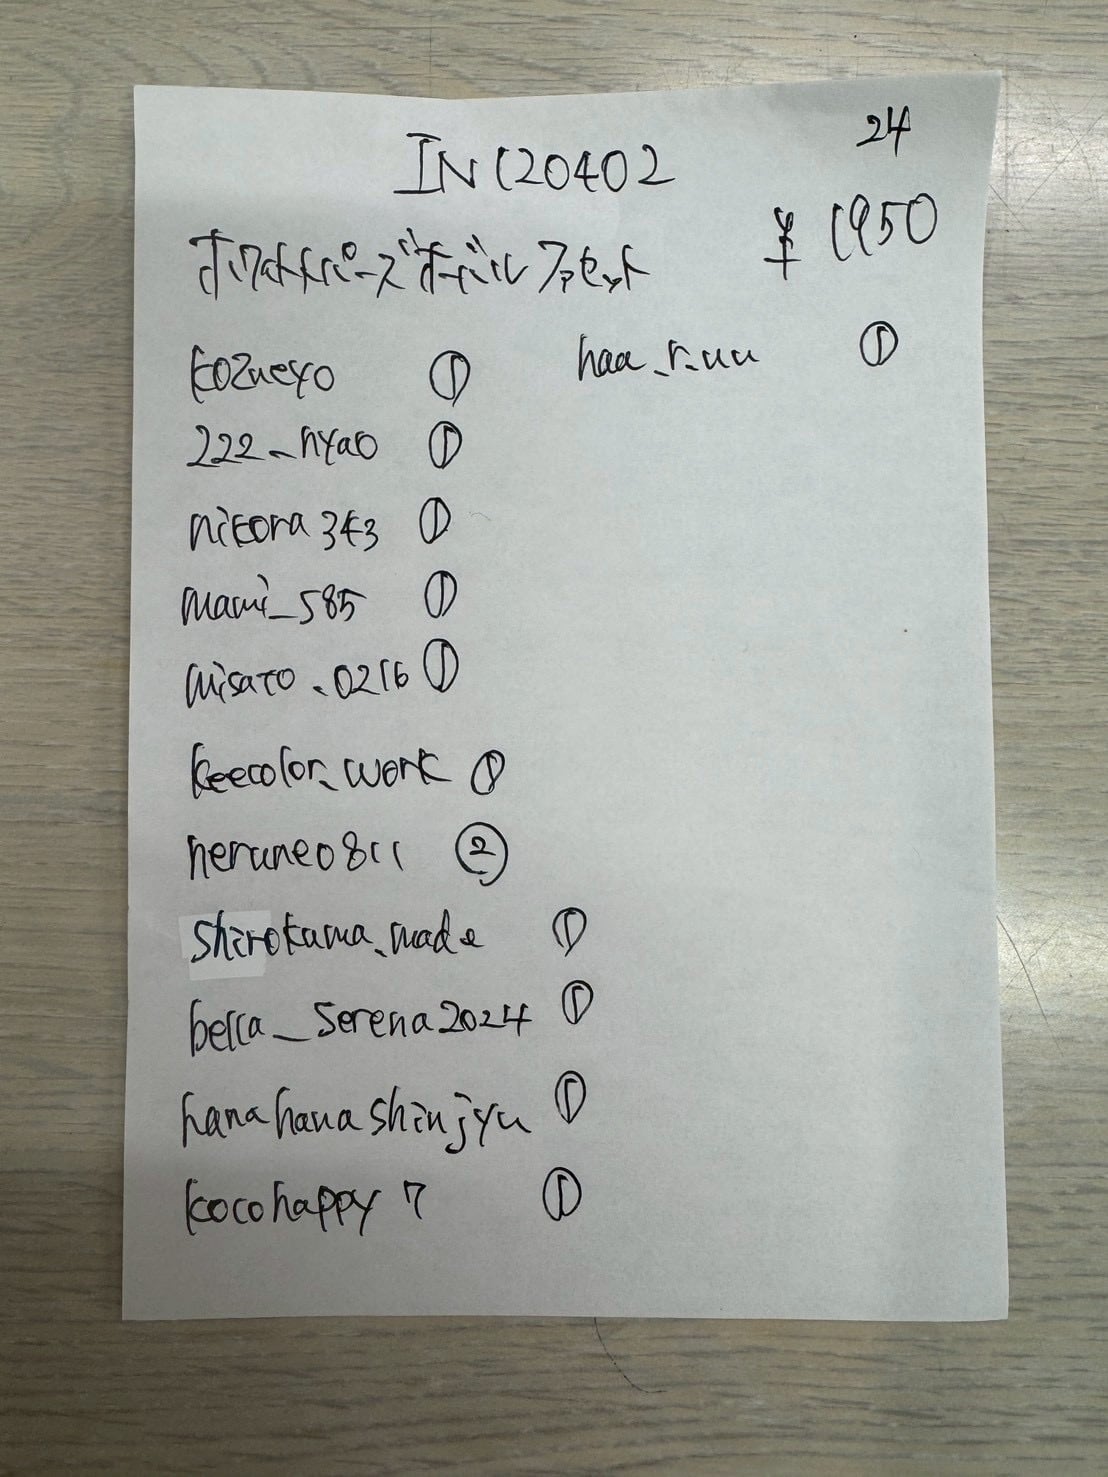 24
IN120402
¥1950
ホワイトトパーズオーバルファセット
kozueyo ①
222_nyao ①
nikora343 ①
mami_585 ①
misato.0216 ①
keecolor_work ①
nerune0811 ②
shirokuma_made ①
bella_serena2024 ①
hanahanashinjyu ①
kocohappy7 ①
haa_r.uu ①